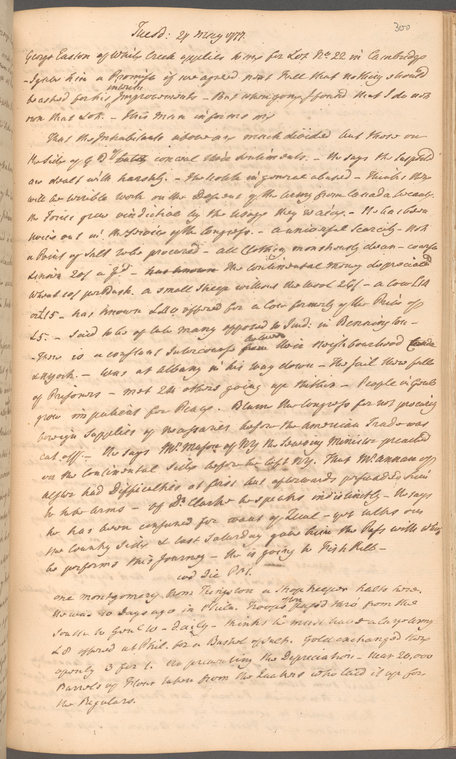 300
Tuesd: 27 May 1777.
George Easton of White Creek applies to me for Lot No 22 in Cambridge
I gave him a Promise if we agreed next Fall that nothing should
be asked for his interim Improvements – But when gone I found that I do not
own that Lot. – This man informs me
That the Inhabitants above are much divided but those on
the Side of G B conceal their Sentiments. – He says the suspected
are dealt with harshly. – The whole in general abused – thinks they
will be terrible work on the Depart of the Army from Canada because
the Tories grew vindictive by the usage they receive. – He has been
twice out in the Service of the Congress. – a universal Scarcity – Not
a Pint of Salt to be procured – all Clothing monstrously dear – coarse
Linnen 20/ a yd – the continental money depreciated
Wheat 10/ per Bush. a small Sheep without the wool 26/ – a cow £14
or £15 – has known offered for a Cow formerly of the Price of
£5: – Said to be of late many opposed to Ind: in Bennington –
There is a constant Intercourse between their Neighbourhood
& NYork – was at Albany in his way down – The Jail there full
of Prisoners – met 24 others going up thither – People in Genl
grow impatient for Peace. Blame the Congress for not procuring
foreign Supplies of necessaries before the American Trade was
cut off – He says Mr. Mason of NY the Seceding Minister preached
on the Continental Side before he left NY. That Mr. Annan of
had Difficulties at first but afterwards persuaded men
to take Arms – of Dr. Clarke he speaks indistinctly – He says
he has been confined for want of Zeal – yet talks on
the Country Side & last Saturday gave him the Pass with which
he performs this Journey – He is going to Fish Kill –
eod Die P.M.
one Montgomery from Kingston a Shopkeeper halts here.
He was 10 Days ago in Phila. Troops then passed thro' from the
South to Genl W – daily – thinks he must have a large Army
£8 offered at Phil. for a Bushel of Salt. Gold exchanged there
openly 3 for 1. the preventing the Depreciation – near 20,000
Barrels of Flour taken from the Quakers who laid it up for
the Regulars.